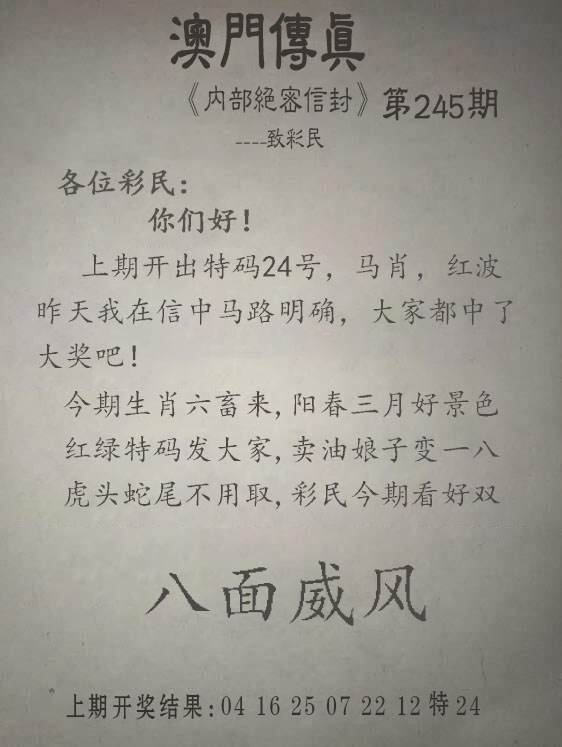 澳門傳真
《内部絕密信封》第245期
----致彩民
各位彩民：
你们好！
上期开出特码24号，马肖，红波
昨天我在信中马路明确，大家都中了
大奖吧！
今期生肖六畜来，阳春三月好景色
红绿特码发大家，卖油娘子变一八
虎头蛇尾不用取，彩民今期看好双
八面威风
上期开奖结果：04 16 25 07 22 12 特 24